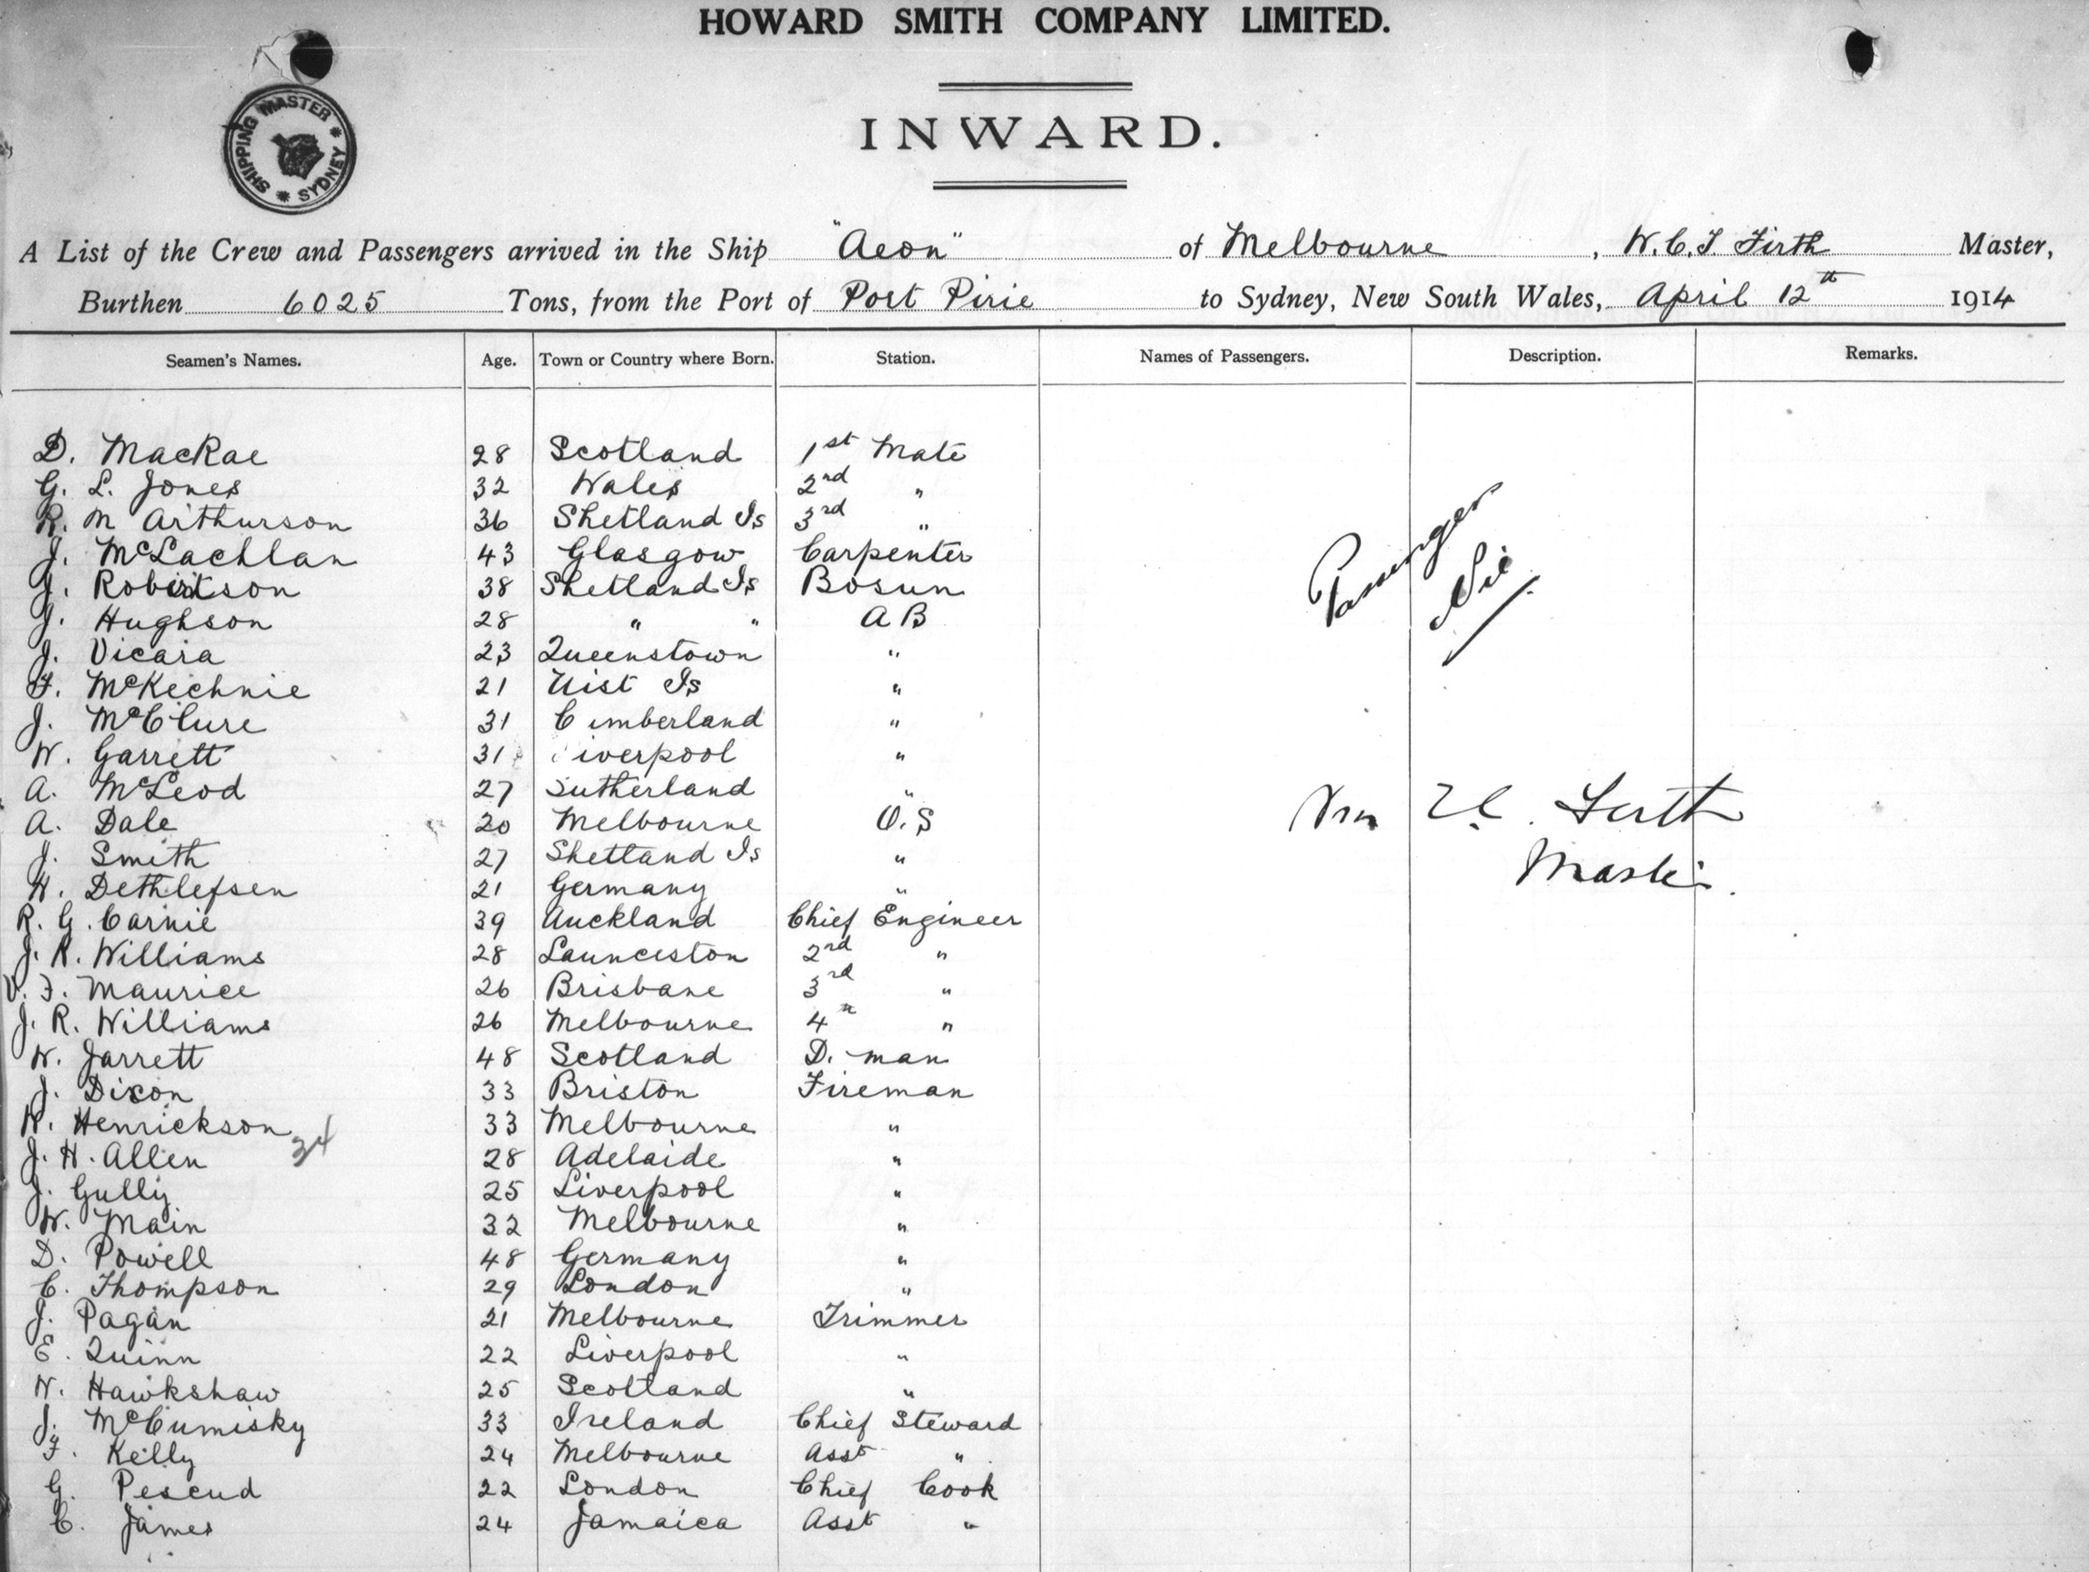 HOWARD SMITH COMPANY LIMITED.
SHIPPING MASTER * SYDNEY *
INWARD.
A List of the Crew and Passengers arrived in the Ship "Aeon" of Melbourne, W.C.J. Firth Master,
Burthen 6025 Tons, from the Port of Port Pirie to Sydney, New South Wales, April 12th 1914
Seamen's Names. Age. Town or Country where Born. Station. Names of Passengers. Description. Remarks.
D. MacRae 28 Scotland 1st Mate
G. L. Jones 32 Wales 2nd "
R. M Arthurson 36 Shetland Is 3rd "
J. McLachlan 43 Glasgow Carpenter
J. Robertson 38 Shetland Is Bosun
J. Hughson 28 " " A B
J. Vicara 23 Queenstown "
F. McKechnie 21 Uist Is "
J. McClure 31 Cumberland "
W. Garrett 31 Liverpool "
A. McLeod 27 Sutherland "
A. Dale 20 Melbourne O.S
J. Smith 27 Shetland Is "
H. Dethlefsen 21 Germany "
R. G. Carnie 39 Auckland Chief Engineer
J. R. Williams 28 Launceston 2nd "
V. F. Maurice 26 Brisbane 3rd "
J. R. Williams 26 Melbourne 4th "
W. Jarrett 48 Scotland D. man
J. Dixon 33 Briston Fireman
W. Henrickson 33 Melbourne "
34
J. H. Allen 28 Adelaide "
J. Gully 25 Liverpool "
W. Main 32 Melbourne "
D. Powell 48 Germany "
C. Thompson 29 London "
J. Pagan 21 Melbourne Trimmer
E. Quinn 22 Liverpool "
W. Hawkshaw 25 Scotland "
J. McCumisky 33 Ireland Chief Steward
F. Kelly 24 Melbourne Asst "
G. Pescud 22 London Chief Cook
C. James 24 Jamaica Asst "
Passenger
Nil
Wm C. Firth
Master.